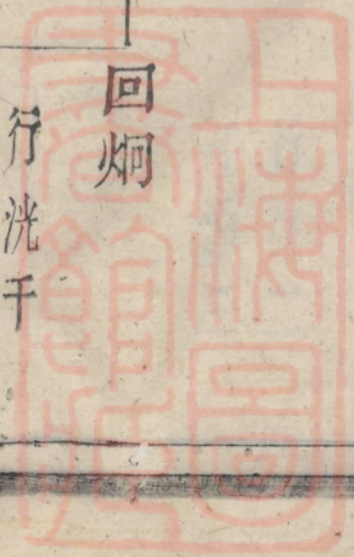 回炯
行洸千
上海圖
書館藏